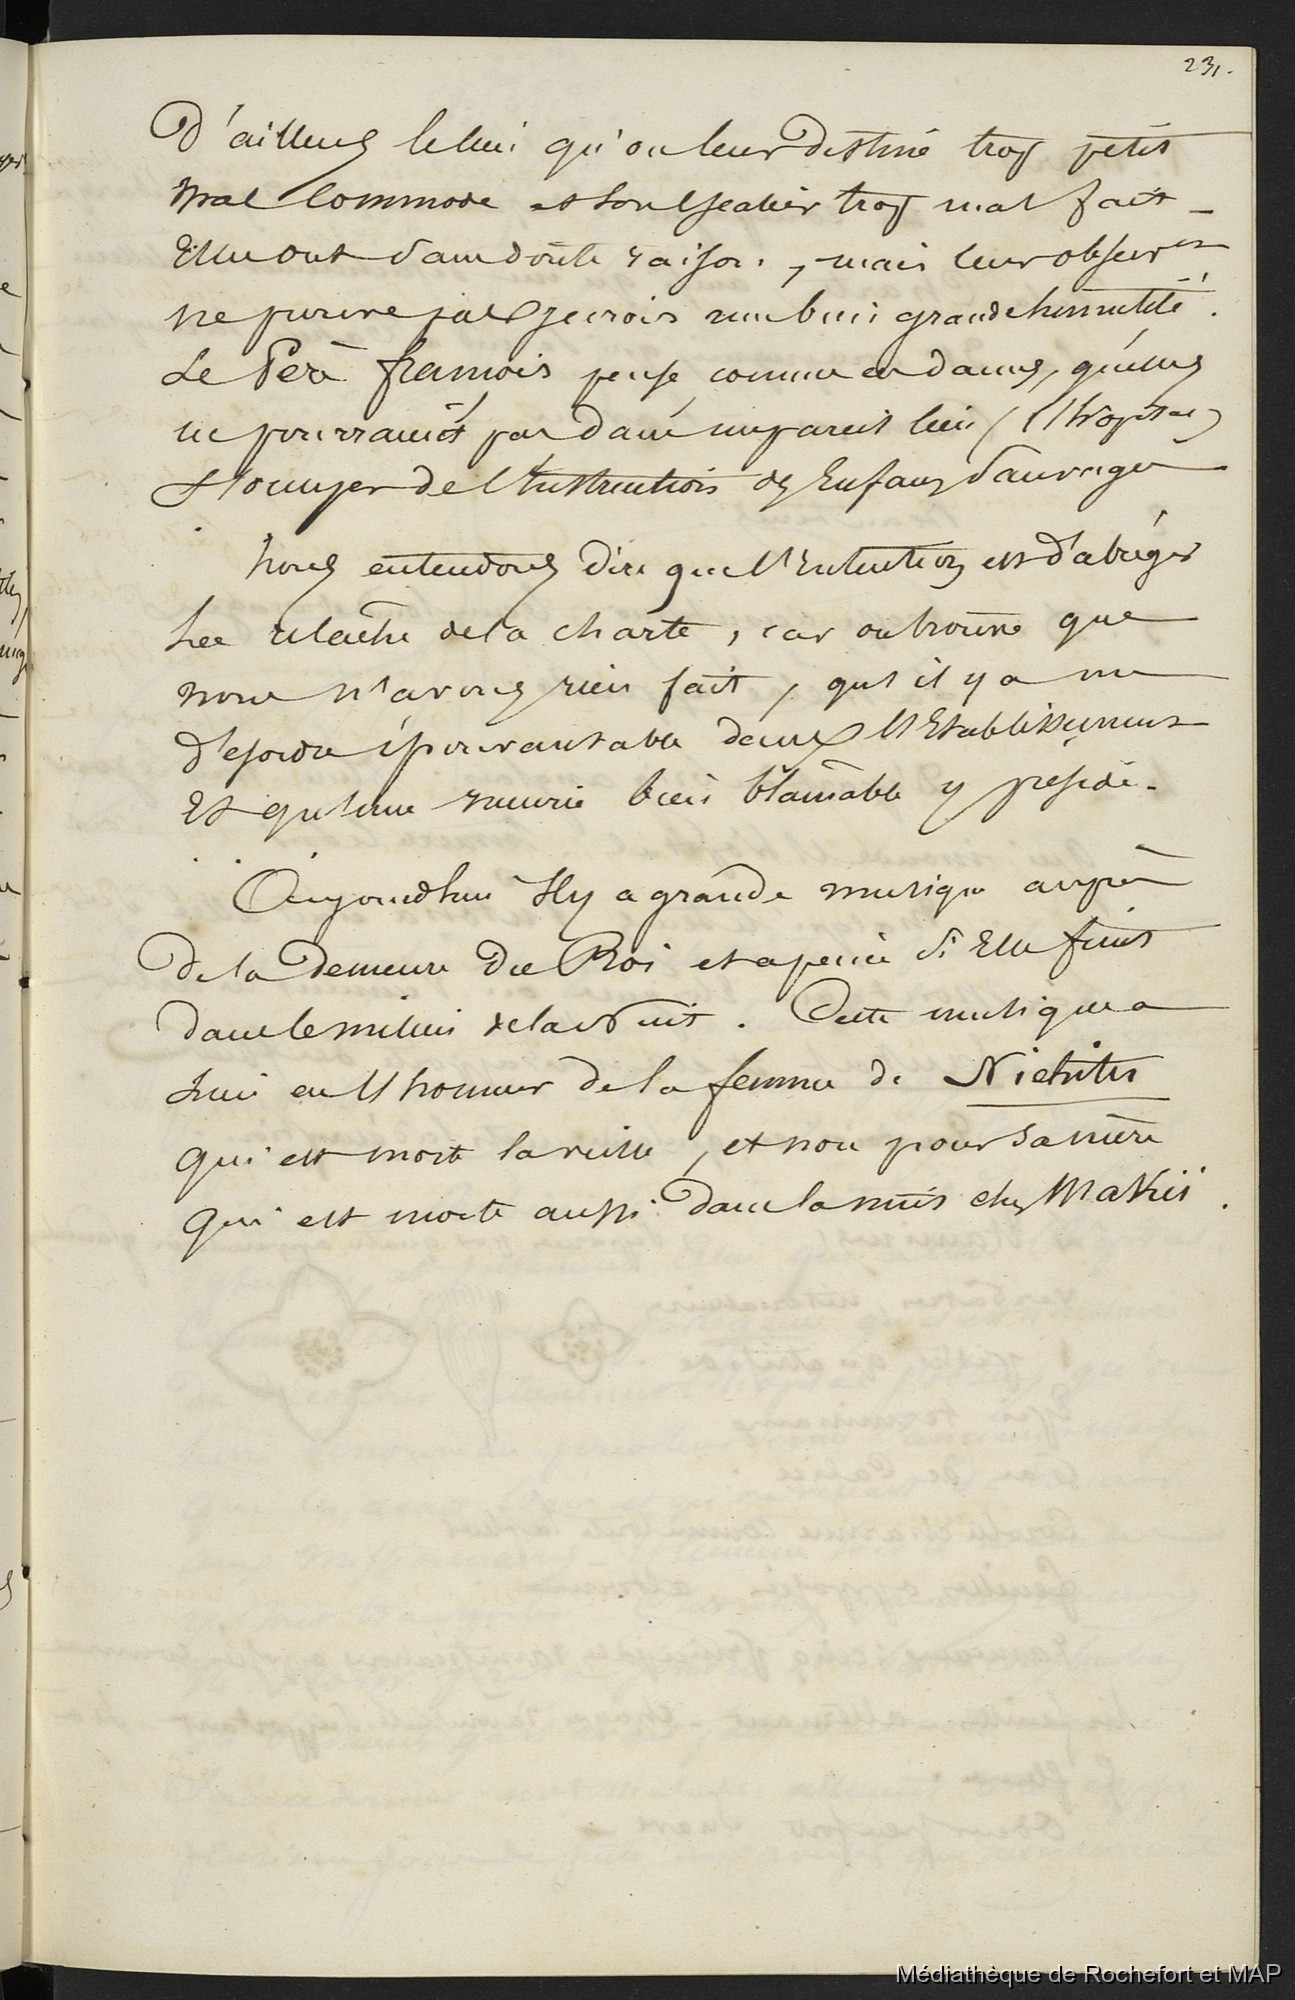 231.
D'ailleurs celui qu'on leur destine trop petit
mal commode et son escalier trop mal fait _
Elles ont sans doute raison, mais leur observon
ne prouve pas je crois une bien grande humilité.
Le Père françois pense comme ces dames, qu'elles
ne pourraient pas dans un pareil lieu (l'hopital)
s'occuper de l'Instruction des Enfans sauvages
Nous entendons dire que l'Intention est d'abréger
la relâche de la charte, car on trouve que
nous n'avons rien fait, qu'il y a un
désordre épouvantable dans l'Etablissement
Et qu'une incurie bien blamable y préside.
Aujourdhui Il y a grande musique auprès
De la Demeure du Roi et à peine si Elle finit
dans le milieu de la Nuit. Cette musique a
lieu en l'honneur de la femme de Niehitu
qui est morte la veille, et non pour sa mère
qui est morte aussi dans la nuit chez Makii.
Médiathèque de Rochefort et MAP